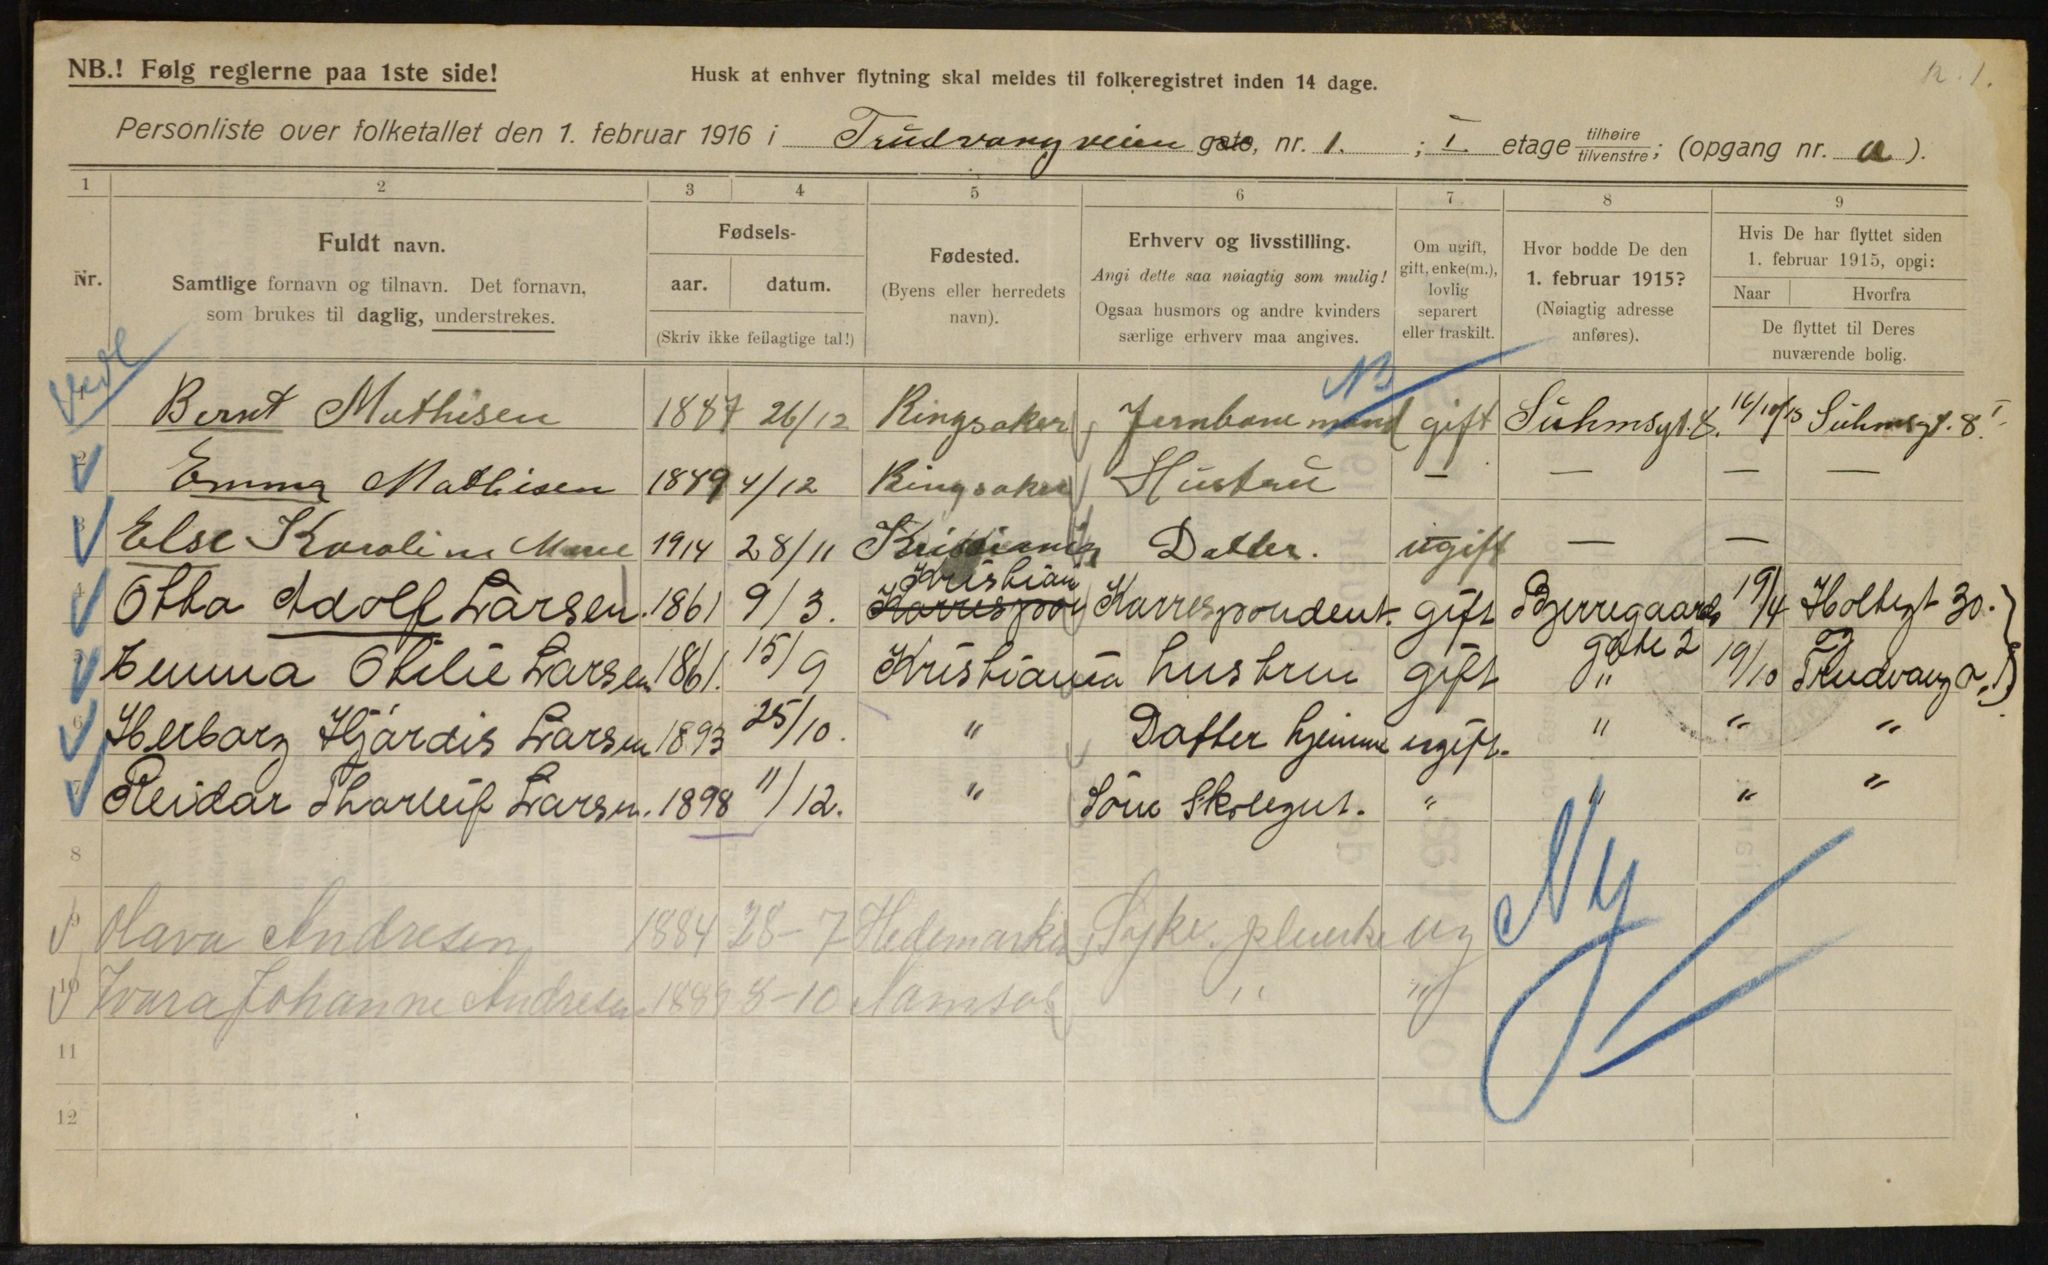 NB.! Følg reglerne paa 1ste side!
Husk at enhver flytning skal meldes til folkeregistret inden 14 dage.
Personliste over folketallet den 1. februar 1916 i Trudvangveien gate, nr. 1. ; I. etage tilhøire tilvenstre; (opgang nr. a ).
1 2 3 4 5 6 7 8 9
Nr.
Fuldt navn.
Samtlige fornavn og tilnavn. Det fornavn,
som brukes til daglig, understrekes.
Fødsels-
aar. datum.
(Skriv ikke feilagtige tal!)
Fødested.
(Byens eller herredets
navn).
Erhverv og livsstilling.
Angi dette saa nøiagtig som mulig!
Ogsaa husmors og andre kvinders
særlige erhverv maa angives.
Om ugift,
gift, enke(m.),
lovlig
separert
eller fraskilt.
Hvor bodde De den
1. februar 1915?
(Nøiagtig adresse
anføres).
Hvis De har flyttet siden
1. februar 1915, opgi:
Naar Hvorfra
De flyttet til Deres
nuværende bolig.
NB
Bernt Mathisen 1887 26/12 Ringsaker Jernbanemand gift Suhmsgt. 8. 16/10/15 Suhmsgt. 8. I
2 Emma Mathisen 1889 4/12 Ringsaker Hustru — — — —
3 Else Karoline 1914 28/11 Kristiania Datter. ugift — —
4 Otto Adolf Larsen. 1861 9/3. Kristian Korrespondent. gift Bjerregaards 19/4 Holtegt 30.
5 Emma Otilie Larsen 1861. 15/9 Kristiania hustru gift gate 2 " 19/10 Trudvang a. 1
6 Herborg Hjørdis Larsen 1893 25/10. " Datter hjemme ugift. " " "
7 Reidar Thorleif Larsen. 1898 11/12. " Søn Skolegut. " " " "
8
Ny
9 Olava Andresen 1884 28-7 Hedemarken Sykepleierske ug
10 Johanne Andresen 8-10 Namsos " "
11
12